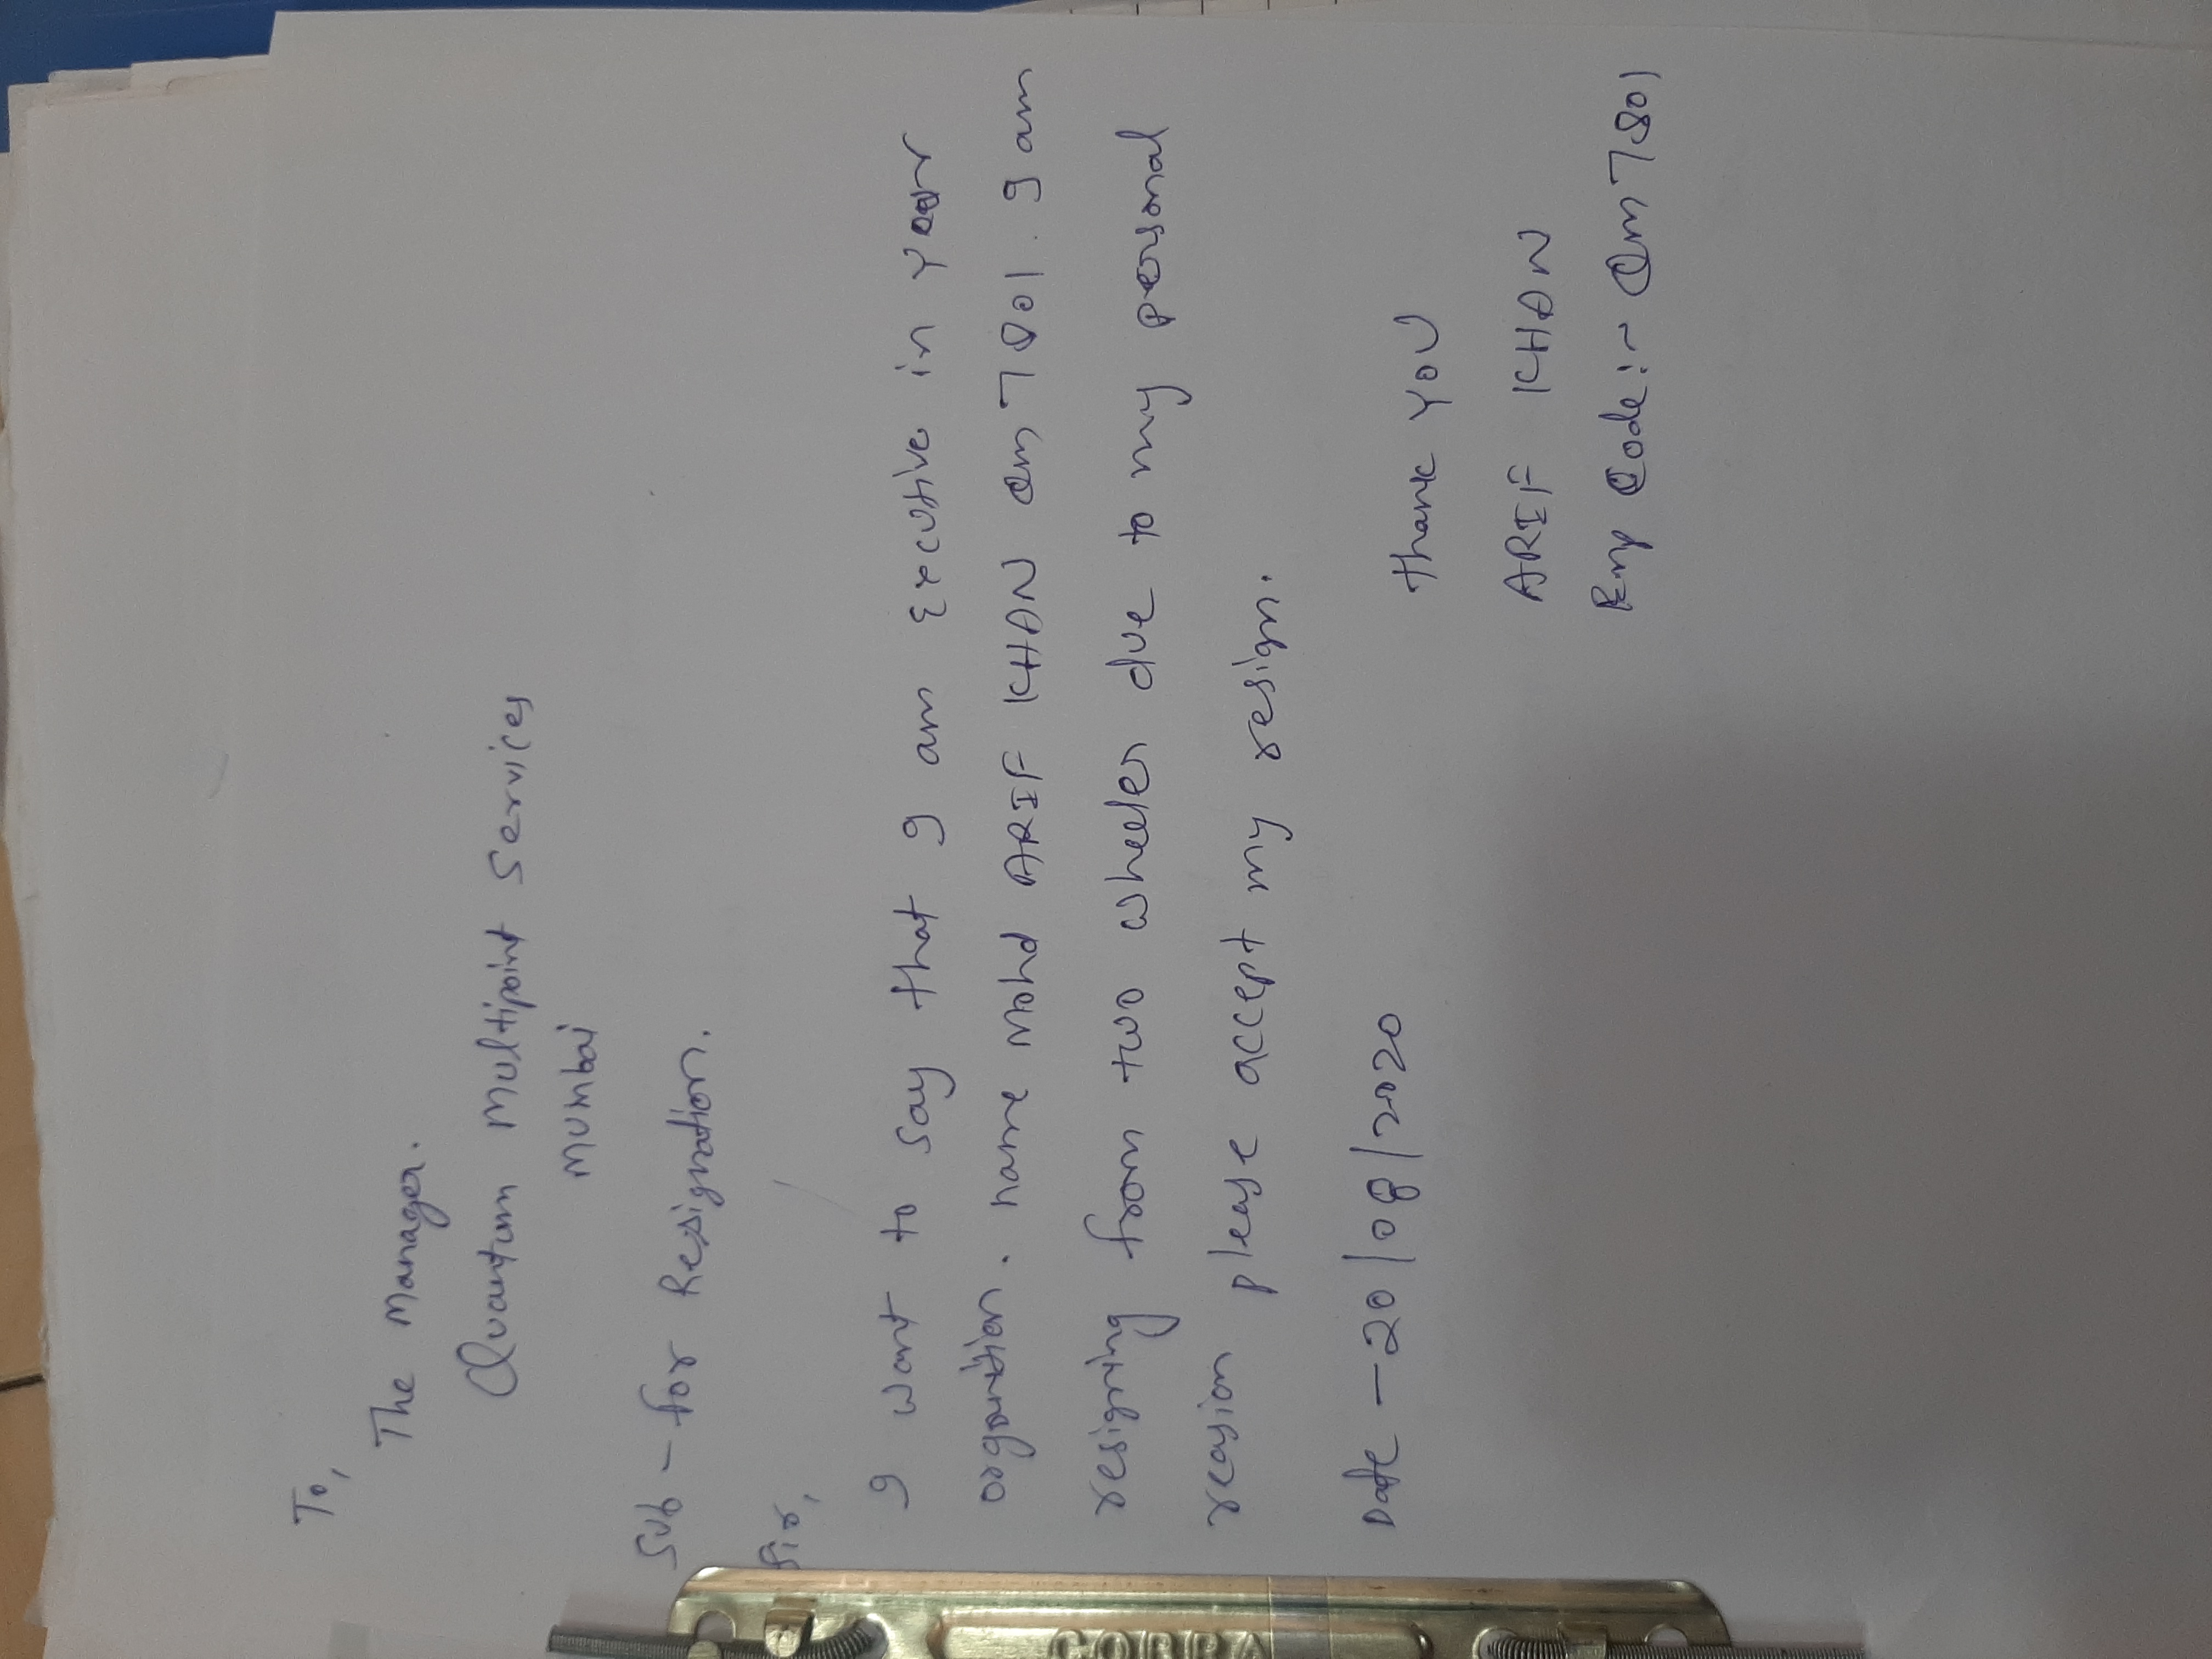 To,
The Manager.
Quantum Multipoint Services
Mumbai
Sub - for Resignation.
Sir,
I want to say that I am Executive in your
organition. name Mohd ARIF KHAN Qm 7801. I am
resigning from two wheeler due to my personal
reasion please accept my resign.
Date - 20/08/2020
Thank YOU
ARIF KHAN
Emp Code:- Qm 7801
COBRA